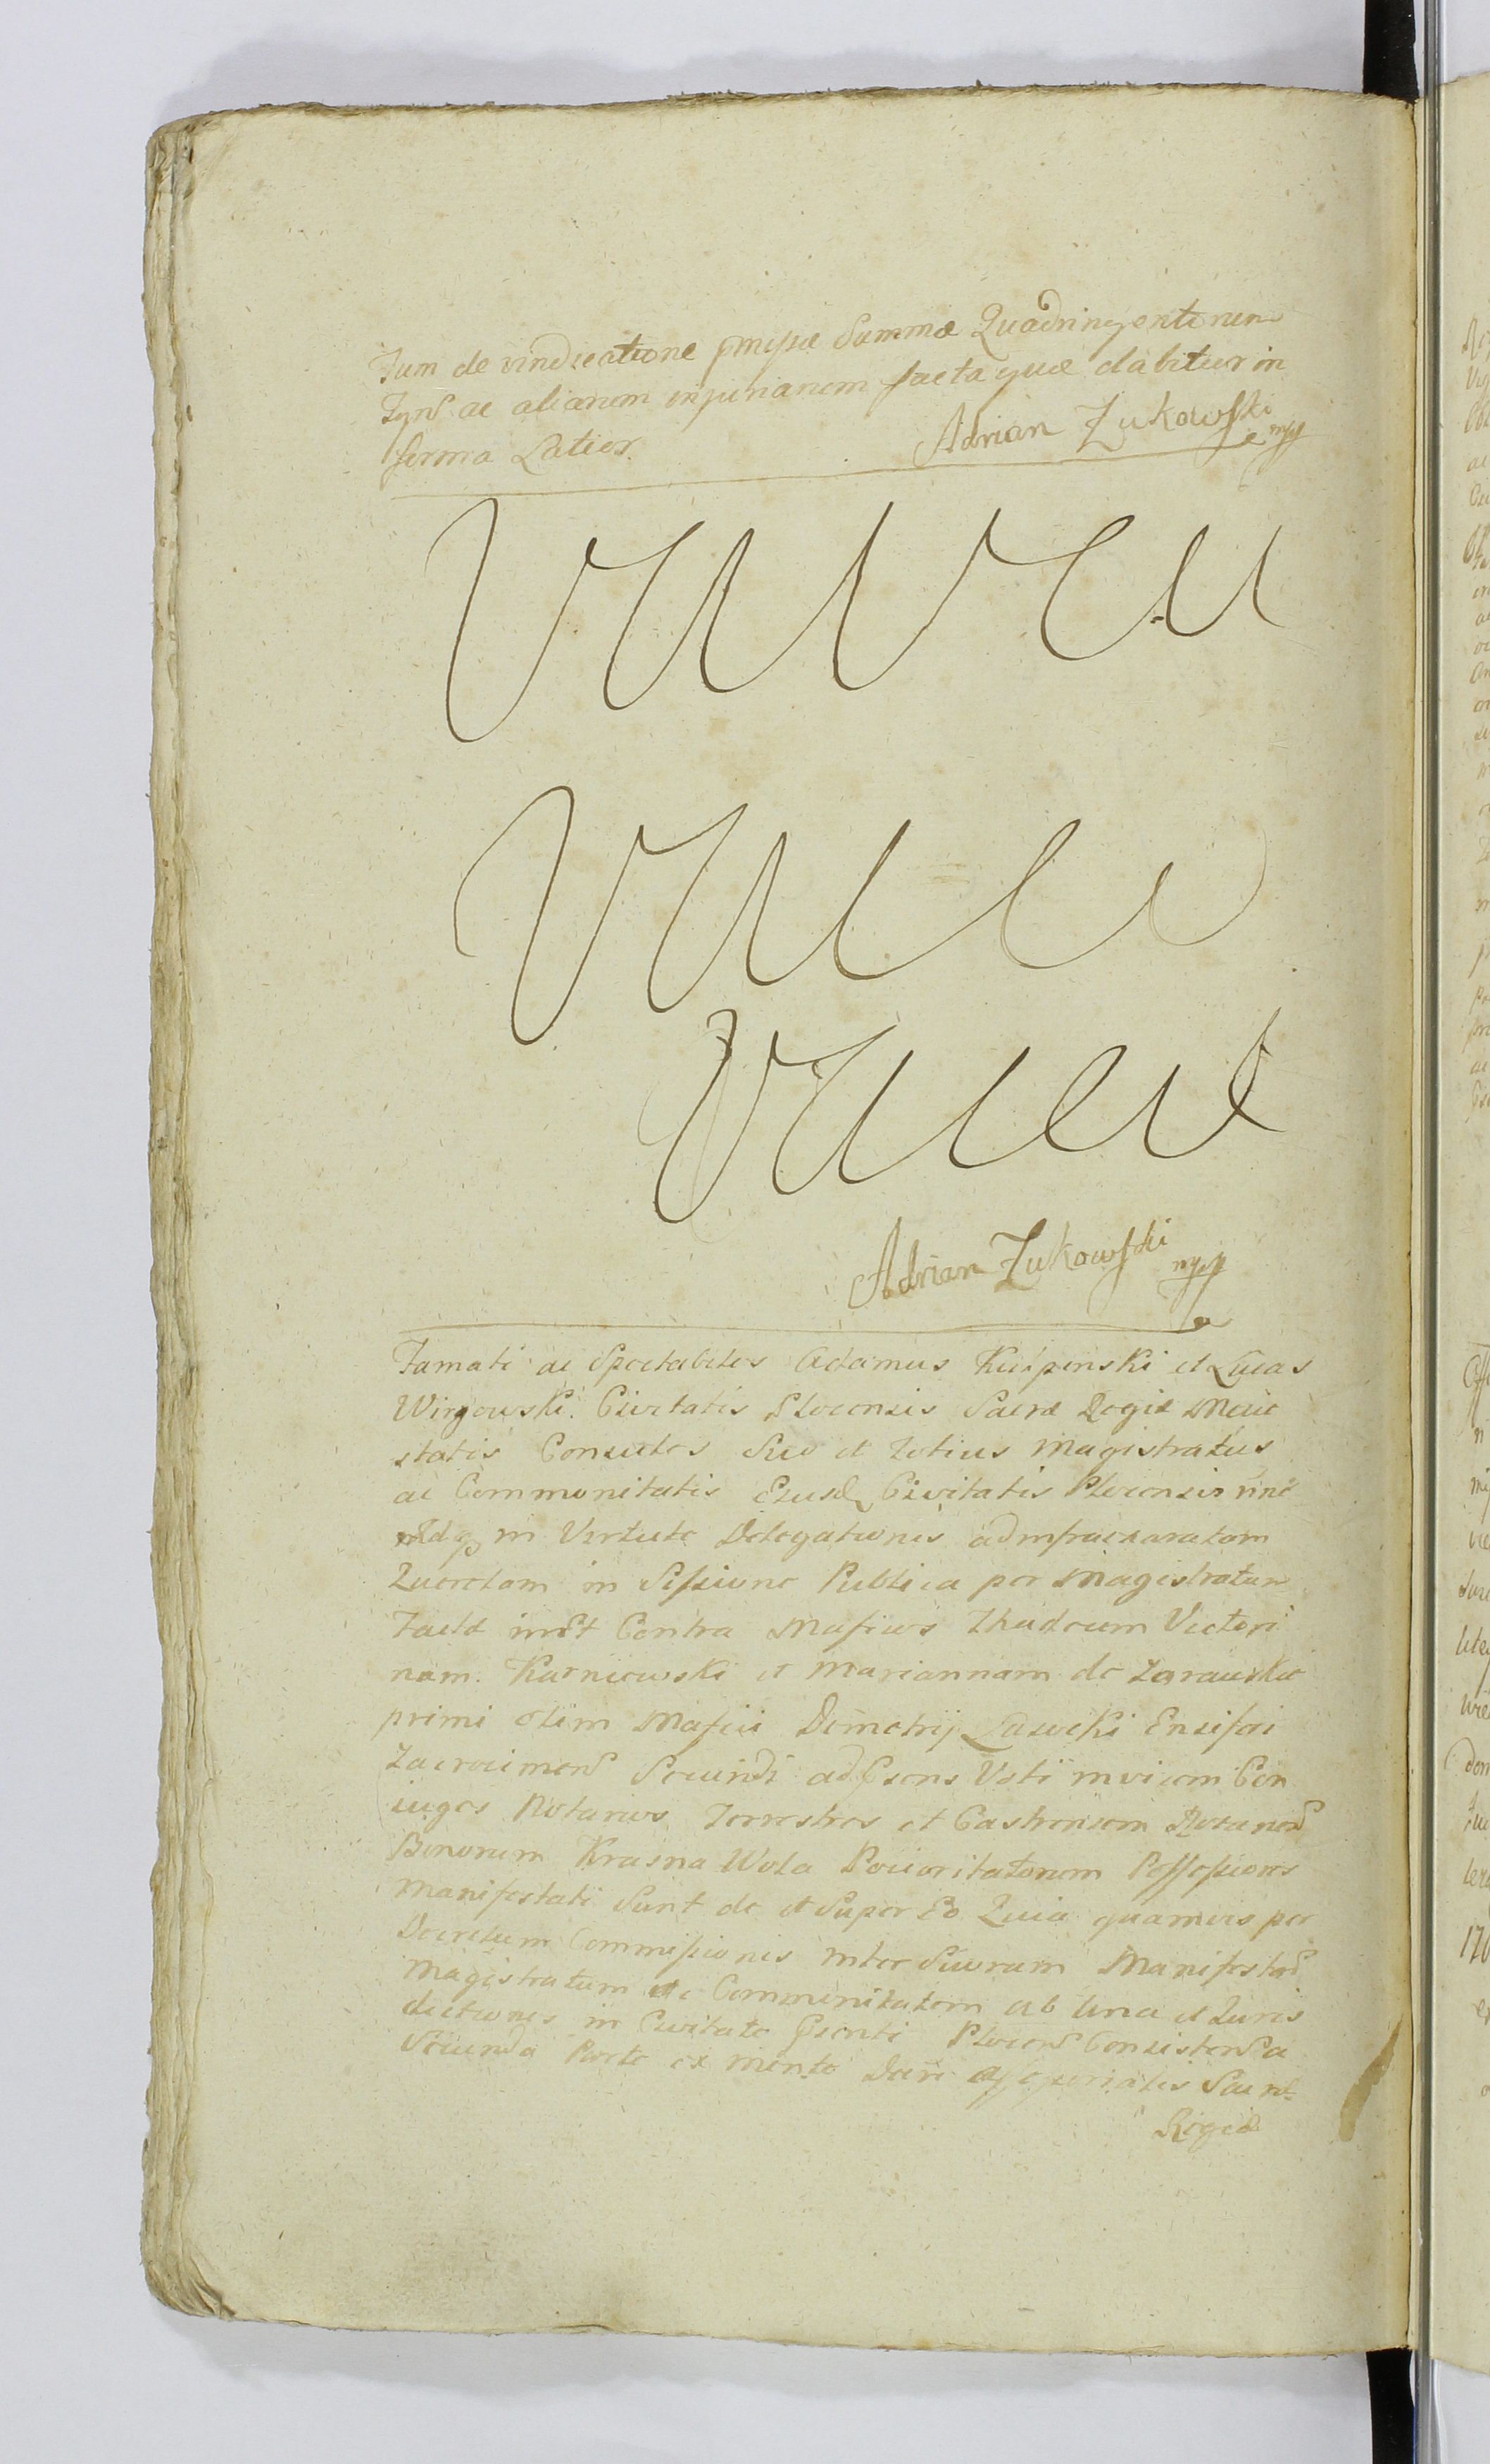 Tum de vindicatione pmissæ Summæ Quadringentorum
Tynf. ac aliarum injuriarum facta quæ dabitur in
forma Latiori.
Adrian Zukowski mpp
Adrian Zukowski mpp
Famati ac Spectabiles Adamus Kulpinski et Lucas
Wirgowski. Civitatis Plocensis Sacræ Regiæ Maie
statis Consules Suo et Totius Magistratus
ac Communitatis Ejusd Civitatis Plocensis
in Virtute Delegationis ad infraexaratam
Querelam in Sessione Publica per Magistratum
Contra Mafcios Thadeum Victori
num. Karniewski et Mariannam de Zarauskie
primi olim Mafcii Dimetrij Lasocki Ensiferi
Zacrocimens Secundi ad Psens Voti invicem Con
iuges Notarios Terrestres et Castrensem Rozanens
Bonorum Krasna Wola Possessores
Manifestati Sunt de et Super Eo Quia quamvis per
Decretum Commissionis inter Suorum Manifestans
Magistratum et Communitatem ab Una et Juris
dictiones in Civitate Psenti Plocens Consistens a
Secunda Parte ex mente Sacræ
Regiæ